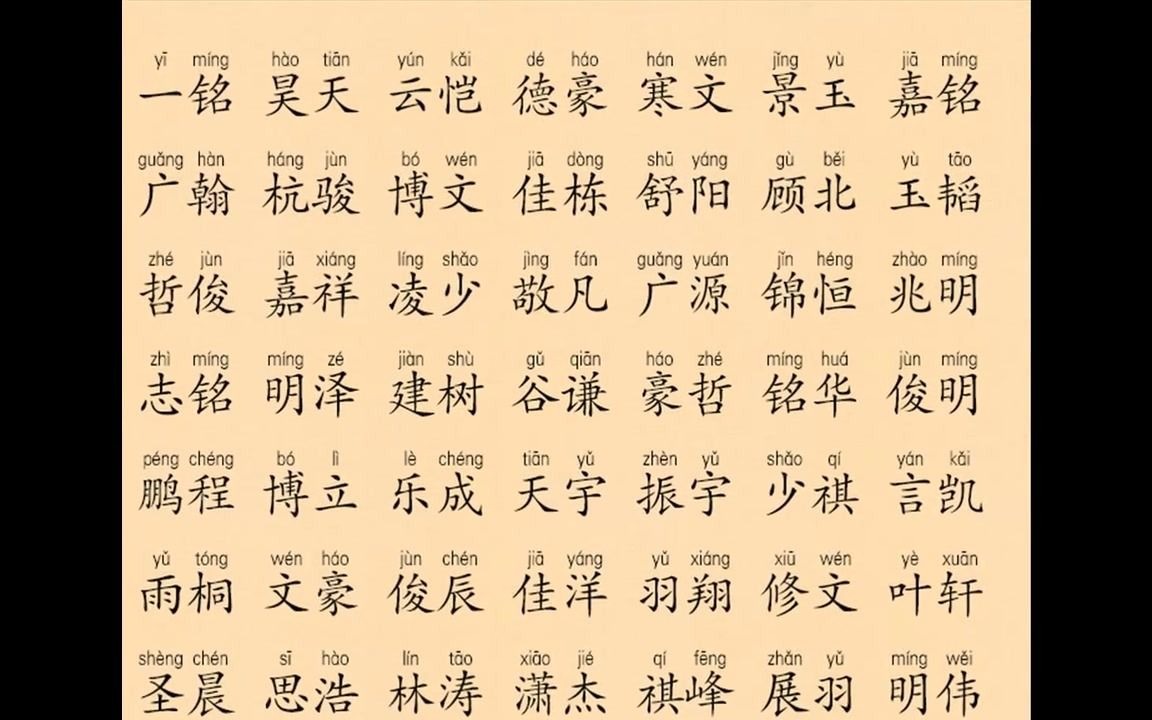 yī míng hào tiān yún kǎi dé háo hán wén jǐng yù jiā míng
一铭 昊天 云恺 德豪 寒文 景玉 嘉铭
guǎng hàn háng jùn bó wén jiā dòng shū yáng gù běi yù tāo
广翰 杭骏 博文 佳栋 舒阳 顾北 玉韬
zhé jùn jiā xiáng líng shǎo jìng fán guǎng yuán jǐn héng zhào míng
哲俊 嘉祥 凌少 敬凡 广源 锦恒 兆明
zhì míng míng zé jiàn shù gǔ qiān háo zhé míng huá jùn míng
志铭 明泽 建树 谷谦 豪哲 铭华 俊明
péng chéng bó lì lè chéng tiān yǔ zhèn yǔ shǎo qí yán kǎi
鹏程 博立 乐成 天宇 振宇 少祺 言凯
yǔ tóng wén háo jùn chén jiā yáng yǔ xiáng xiū wén yè xuān
雨桐 文豪 俊辰 佳洋 羽翔 修文 叶轩
shèng chén sī hào lín tāo xiāo jié qí fēng zhǎn yǔ míng wěi
圣晨 思浩 林涛 潇杰 祺峰 展羽 明伟